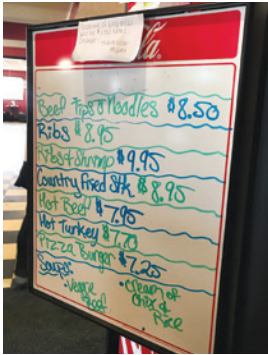 la.
Beef Tips & Noodles $8.50
Ribs $8.95
Ribs & Shrimp $9.95
Country Fried Stk $8.95
Hot Beef $7.95
Hot Turkey $7.70
Pizza Burger $7.25
Soups:
• Veggie Beef
• Cream of Chix & Rice